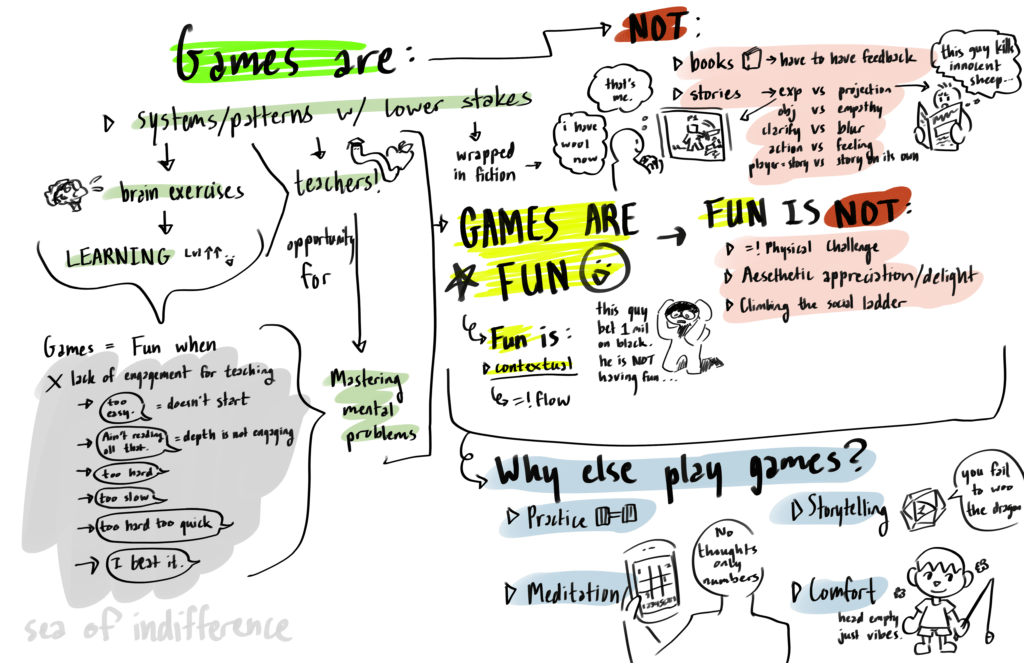 Games are:
NOT:
▷ books → have to have feedback
▷ stories → exp vs projection
obj vs empathy
clarify vs blur
action vs feeling
player + story vs story on its own
this guy kills
innocent
sheep...
that's
me.
i have
wool
now
▷ systems/patterns w/ lower stakes
wrapped
in fiction
brain exercises
LEARNING Lvl ↑↑
teachers!
opportunity
for
Mastering
mental
problems
Games = Fun when
X lack of engagement for teaching
→ too
easy. = doesn't start
→ Ain't reading
all that. = depth is not engaging
→ too hard
→ too slow
→ too hard too quick
→ I beat it.
sea of indifference
GAMES ARE
FUN
Fun is:
▷ contextual
=! flow
this guy
bet 1 mil
on black.
he is NOT
having fun...
FUN IS NOT:
▷ =! Physical Challenge
▷ Aesethetic appreciation/delight
▷ Climbing the social ladder
Why else play games?
▷ Practice
▷ Storytelling
you fail
to woo
the dragon
▷ Meditation
12345678
No
thoughts
only
numbers
▷ Comfort
head empty
just vibes.